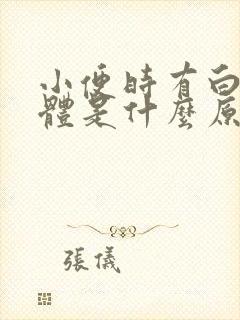 小便時有白
體是什麼原
張儀